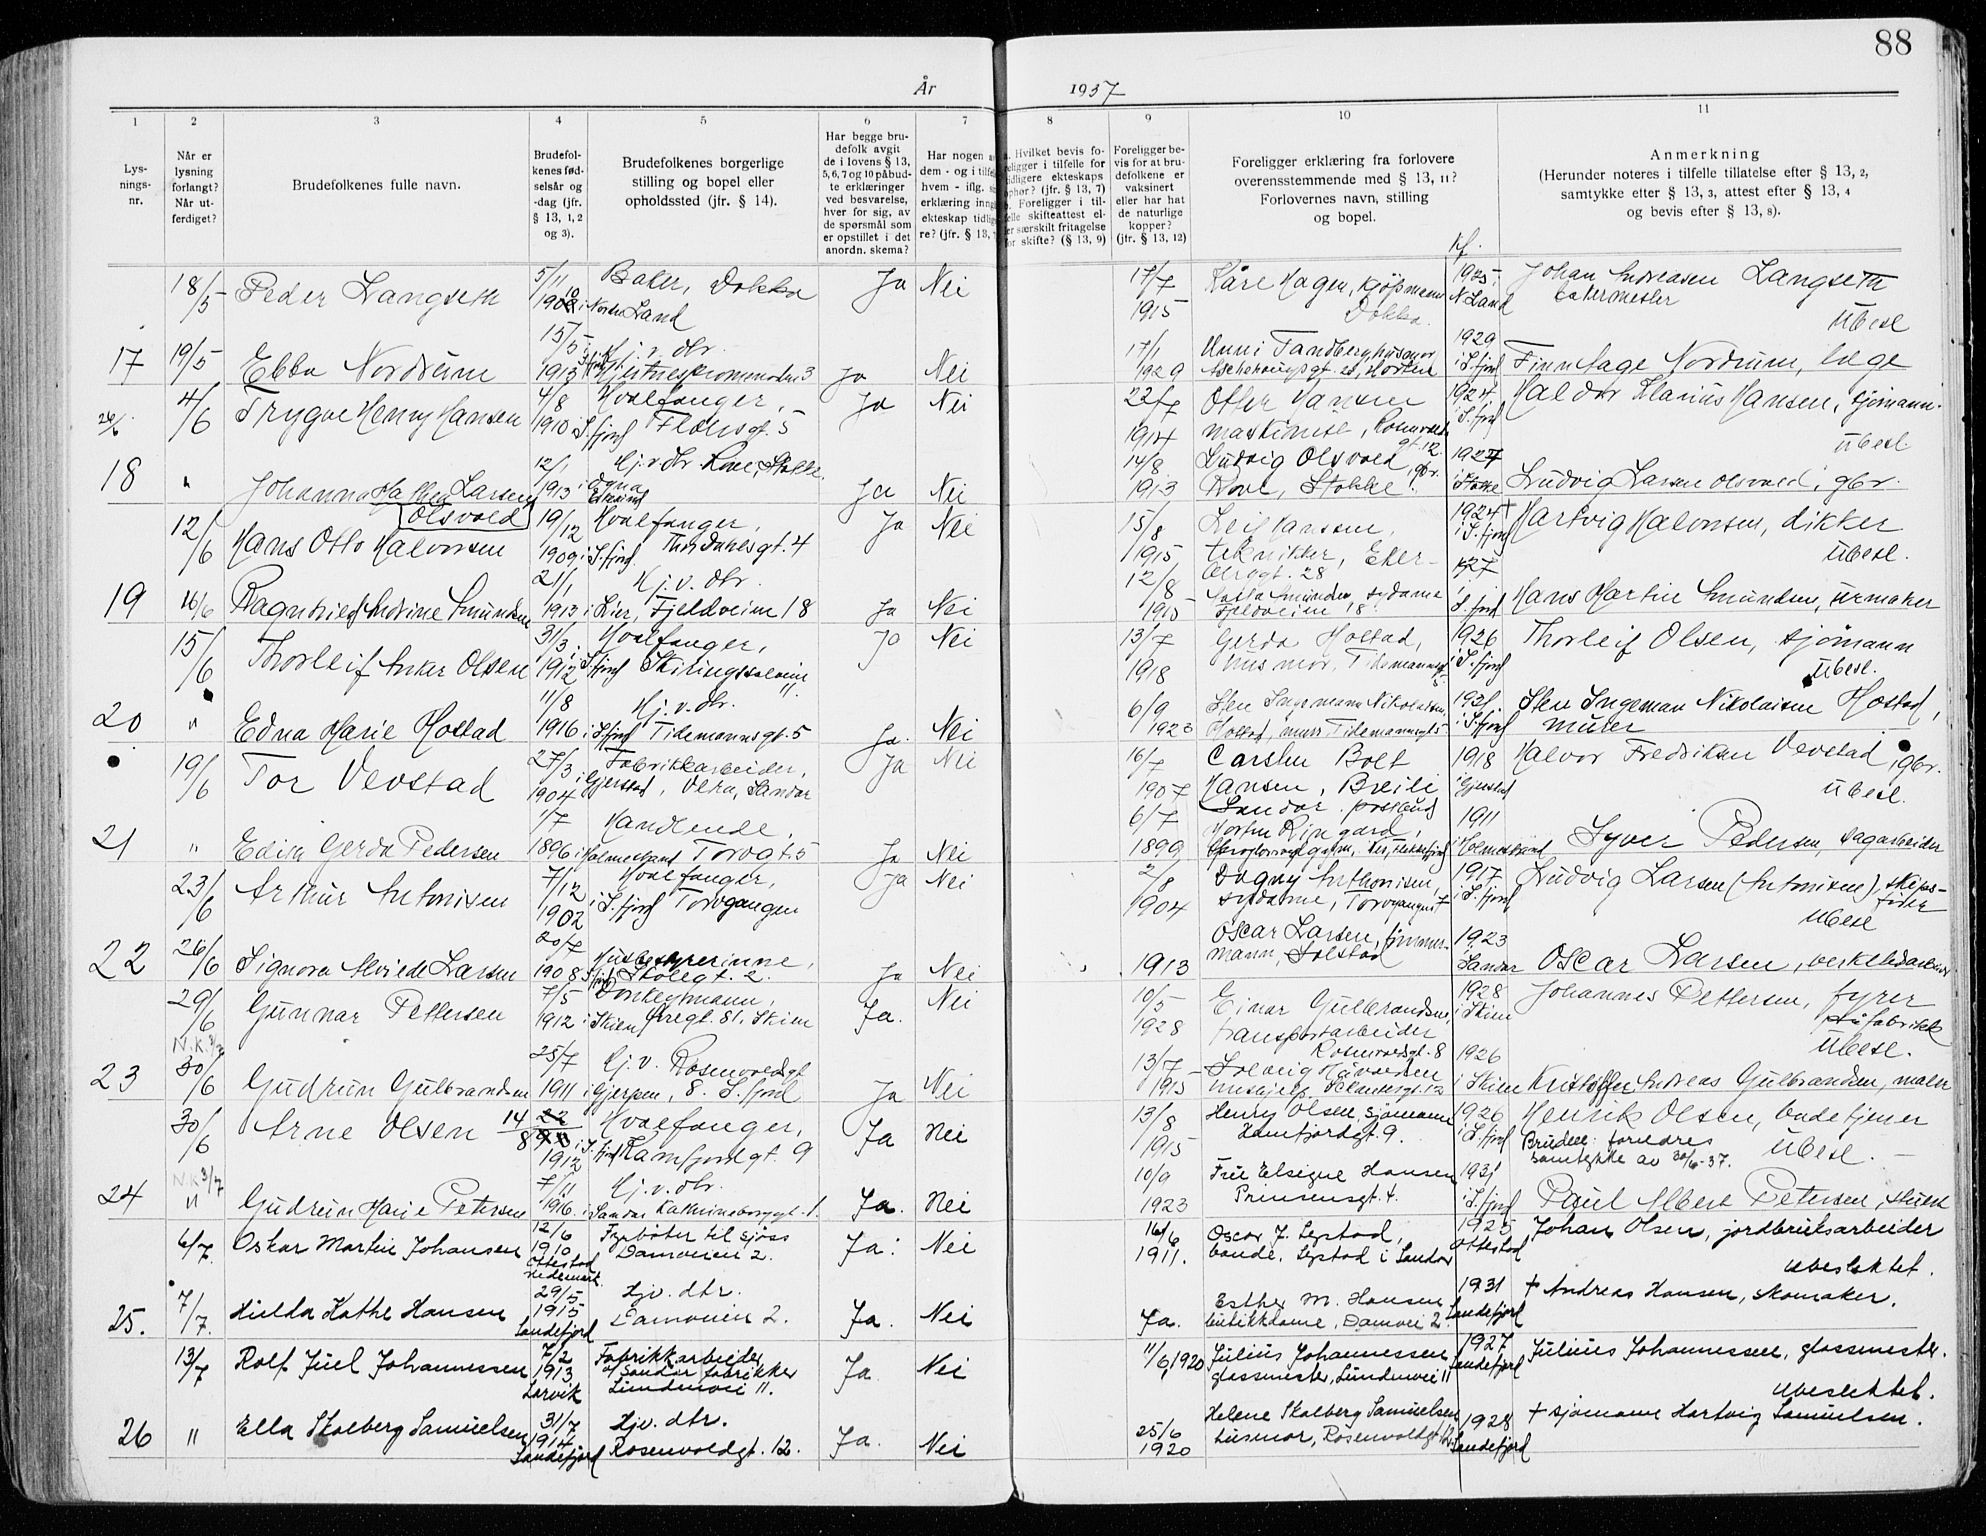 88
År 1937
1 2 3 4 5 6 7 8 9 10 11
Lysnings-nr.
Når er lysning forlangt? Når utferdiget?
Brudefolkenes fulle navn.
Brudefolkenes fødselsår og -dag (jfr. § 13, 1, 2 og 3).
Brudefolkenes borgerlige stilling og bopel eller opholdssted (jfr. § 14).
Har begge brudefolk avgit de i lovens § 13, 5, 6, 7 og 10 påbudte erklæringer ved besvarelse, hver for sig, av de spørsmål som er opstillet i det anordn. skema?
Har nogen a
dem - og i tilfel
hvem - iflg. s
erklæring inng
ekteskap tidlig
re? (jfr. § 13,
Hvilket bevis fo-
religger i tilfelle for
tidligere ekteskaps
ophør? (jfr. § 13, 7)
Foreligger i til-
felle skifteattest el-
er særskilt fritagelse
for skifte? (§ 13, 9)
Foreligger bevis for at brudefolkene er vaksinert eller har hat de naturlige kopper? (jfr. § 13, 12)
Foreligger erklæring fra forlovere
overensstemmende med § 13, 11?
Forlovernes navn, stilling
og bopel.
Anmerkning
(Herunder noteres i tilfelle tillatelse efter § 13, 2,
samtykke efter § 13, 3, attest efter § 13, 4
og bevis efter § 13, 8).
18/5 Peder Langseth 5/11 Baker, Dokka Nordre Land Ja Nei 17/7 1915 Kåre Hagen, kjøpmann Dokka. 1925 N Land Johan Andreasen Langseth bakermester ubesl
17 19/5 Ebba Nordrum 15/5 1913 Hj. v. dtr. Ja Nei 17/1 1929 Unni Tandberg, husmor Horten 1929 i S.fjord Finn Hage Nordrum, læge
26/6 4/6 Trygve Henry Hansen 4/8 1910 i S.fjord Hvalfanger, Ja Nei 22/7 1914 Otter Hansen maskinist, gt. 12 1924 i S.fjord Haldor Hansen, sjømann. ubesl
18 " Johanna Larsen Olsvold 12/1 1913 i Ogna Hj. v. dtr. Rove, Stokke Ja Nei 14/8 1913 Ludvig Olsvold, gbr. Rove, Stokke 1927 i Stokke Ludvig Larsen Olsvold, gbr.
12/6 Hans Otto Halvorsen 19/12 1909 i S.fjord Hvalfanger, Thor Dahlsgt. 4 Ja Nei 15/8 1915 Leif Hanssen, tekniker, 28 1924 i S.fjord Hartvig Halvorsen, dikker ubesl.
19 16/6 Ragnhild Andrine Amundsen 21/1 1913 i Lier, Hj. v. dtr. Fjeldveien 18 Ja Nei 12/8 1915 Amundsen, sydame Fjeldveien 18 1927 i S.fjord Hans Martin Amundsen, urmaker
15/6 Thorleif Anker Olsen 31/3 1912 i S.fjord Hvalfanger, Skiringssalveien 11 Ja Nei 13/7 1918 Gerda Hostad, husmor, Tidemannsgt 5 1926 i S.fjord Thorleif Olsen, sjømann ubesl.
20 " Edna Marie Hostad 11/8 1916 i S.fjord Hj. v. dtr. Tidemannsgt. 5 Ja. Nei 6/9 1923 Sten Ingemann Nikolaisen Hostad, murer Tidemannsgt 5 1931 i S.fjord Sten Ingeman Nikolaisen Hostad, murer
19/6 Tor Vevstad 27/3 1904 i Gjerstad Fabrikkarbeider, Vera, Sandar Ja Nei 16/7 1907 Carsten Bolt Hansen, Breili Sandar. postbud 1918 i Gjerstad Halvor Fredriksen Vevstad, gbr. ubesl.
21 " Edith Gerda Pedersen 1/7 1896 i Holmestrand Handlende, Torvgt. 5 Ja Nei 6/7 1899 Morten Ringard, 1911 i Holmestrand Syver Pedersen, sagarbeider
23/6 Arthur Antonisen 7/12 1902 i S.fjord Hvalfanger, Torvgangen Ja Nei 2/8 1904 Dagny Anthonisen, sydame, Torvgangen 7 1917 i S.fjord Ludvig Larsen (Antonisen), skipsfører ubesl
22 26/6 Signora Alvilde Larsen 20/7 1908 S.fjord Husbestyrerinne, Skolegt. 2. Ja Nei 1913 Oscar Larsen, tømmermann, Solstad 1923 i Sandar Oscar Larsen, verkstedarbeider
29/6 Gunnar Pettersen 7/5 1912 i Skien Donkeymann, 81. Skien Ja. Nei 10/5 1928 Einar Gulbrandsen, transportarbeider Rosenvoldsgt. 8 1928 i Skien Johannes Pettersen, fyrer på fabrikk ubesl.
N.K. 3/7
23 30/6 Gudrun Gulbrandsen 25/7 1911 i Gjerpen Hj. v. Rosenvoldsgt 8. S.fjord Ja Nei 13/7 1915 Solveig Halvorsen 1926 i Skien Kristoffer Andreas Gulbrandsen, maler
30/6 Arne Olsen 14/8 1912 i S.fjord Hvalfanger, Kamfjordgt. 9 Ja Nei 13/8 1915 Henry Olsen sjømann Kamfjordgt. 9. 1926 i S.fjord Henrik Olsen, badetjener Brudens foreldres samtykke av 30/6-37. ubesl.
N.K 3/7
24 " Gudrun Marie Petersen 7/11 1916 i Sandar Hj. v. dtr. Kathrineborggt. 1. Ja. Nei 10/9 1923 Fru Elsigne Hansen Prinsensgt. 4. 1931 i S.fjord Paul Albert Petersen,
6/7. Oskar Martin Johansen 12/6 1910 Ottestad Hedemark. Fyrbøter til sjøss Damveien 2. Ja. Nei 16/6 1911. Oscar J. Lystad, bonde. Lystad i Sandar 1925 Ottestad Johan Olsen, jordbruksarbeider ubeslektet.
25. 7/7. Hilda Kathe Hansen 29/5 1915 Sandefjord Hjv. dtr. Damveien 2. Ja. Nei Ja. Esther M. Hansen butikkdame, Damvei 2. 1931 Sandefjord † Andreas Hansen, skomaker.
13/7 Rolf Juel Johannessen 7/2 1913 Larvik Fabrikkarbeider v/ Sandar fabrikker Lundenvei 11. Ja. Nei 11/6 1920 Julius Johannessen glassmester, Lundenvei 11 1927 Sandefjord Julius Johannessen, glassmester. ubeslektet.
26 " Ella Skalberg Samuelsen 31/7 1914 Sandefjord Hjv. dtr. Rosenvoldgt. 12. Ja. Nei 25/6 1920 Helene Skalberg Samuelsen husmor, Rosenvoldgt 12. 1928 Sandefjord † sjømann Hartvig Samuelsen.